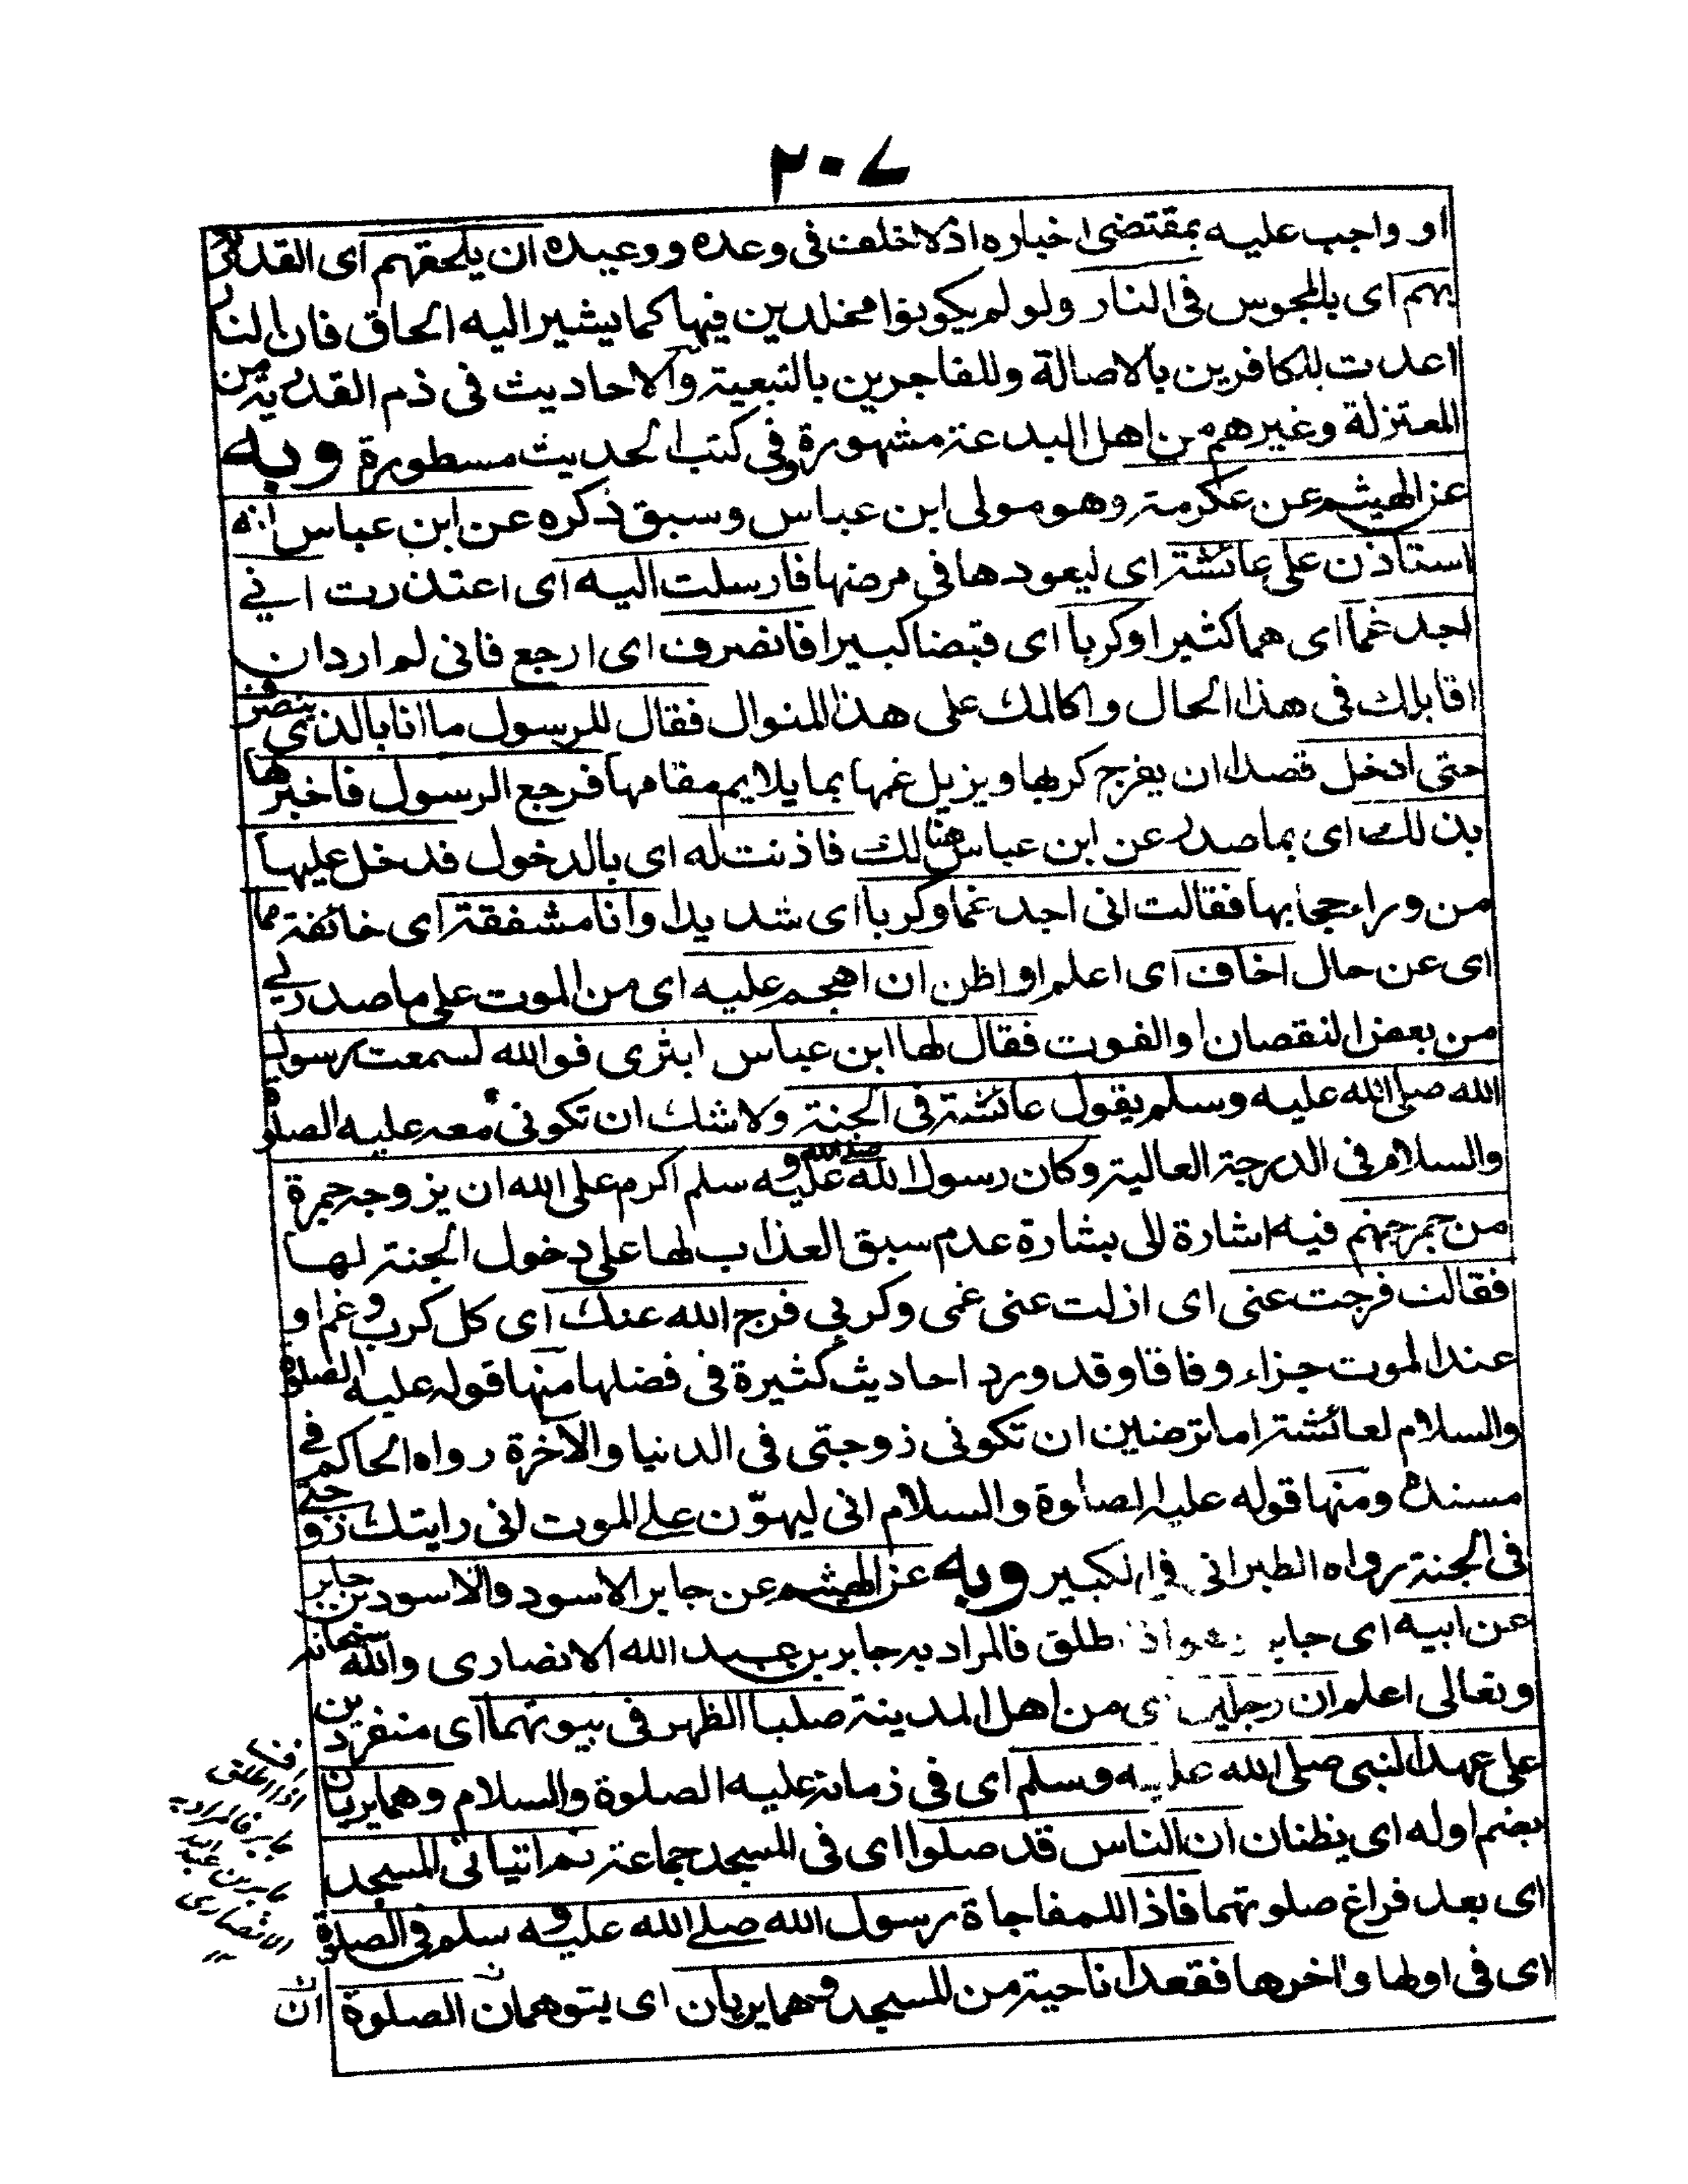 ٢٠٧
او واجب عليه بمقتضى اخباره اذ لا خلف فى وعده ووعيده ان يلحقهم اى القدرية
بهم اى بالمجوس فى النار ولو لم يكونوا مخلدين فيها كما يشير اليه الحاق فان النار
اعدت للكافرين بالاصالة وللفاجرين بالتبعية والاحاديث فى ذم القدرية من
المعتزلة وغيرهم من اهل البدعة مشهورة وفى كتب الحديث مسطورة وبه
عن الهيثم عن عكرمة وهو مولى ابن عباس وسبق ذكره عن ابن عباس انه
استاذن على عائشة اى ليعودها فى مرضها فارسلت اليه اى اعتذرت انى
اجد غما اى هما كثيرا وكربا اى قبضا كبيرا فانصرف اى ارجع فانى لم ارد ان
اقابلك فى هذا الحال واكالمك على هذا المنوال فقال للرسول ما انا بالذى ينصرف
حتى ادخل قصدا ان يفرج كربها ويزيل غمها بما يلايم مقامها فرجع الرسول فاخبرها
بذلك اى بما صدر عن ابن عباس هنالك فاذنت له اى بالدخول فدخل عليها
من وراء حجابها فقالت انى اجد غما وكربا اى شديدا وانا مشفقة اى خائفة مما
اى عن حال اخاف اى اعلم او اظن ان اهجم عليه اى من الموت على ما صدر لى
من بعض النقصان او الفوت فقال لها ابن عباس ابشرى فوالله لسمعت رسول
الله صلى الله عليه وسلم يقول عائشة فى الجنة ولا شك ان تكونى معه عليه الصلوة
والسلام فى الدرجة العالية وكان رسول الله صلى الله عليه وسلم اكرم على الله ان يزوجه جمرة
من جمر جهنم فيه اشارة الى بشارة عدم سبق العذاب لها على دخول الجنة لها
فقالت فرجت عنى اى ازلت عنى غمى وكربى فرج الله عنك اى كل كرب وغم او
عند الموت جزاء وفاقا وقد ورد احاديث كثيرة فى فضلها منها قوله عليه الصلوة
والسلام لعائشة اما ترضين ان تكونى زوجتى فى الدنيا والآخرة رواه الحاكم فى
مسنده ومنها قوله عليه الصلوة والسلام انى ليهوّن على الموت انى رايتك زوجتى
فى الجنة رواه الطبرانى فى الكبير وبه عن الهيثم عن جابر الاسود والاسود بن جابر
عن ابيه اى جابر طلق فالمراد به جابر بن عبد الله الانصارى والله سبحانه
وتعالى اعلم ان رجلين اى من اهل المدينة صلبا الظهر فى بيوتهما اى منفردين
على عهد النبى صلى الله عليه وسلم اى فى زمانه عليه الصلوة والسلام وهما يريان
بضم اوله اى يظنان ان الناس قد صلوا اى فى المسجد جماعة ثم اتيا اتى المسجد
اى بعد فراغ صلوتهما فاذا للمفاجاة رسول الله صلى الله عليه وسلم فى الصلوة
اى فى اولها واخرها فقعدا ناحية من المسجد وهما يريان اى يتوهمان ان الصلوة
ان
اذا اطلق
جابر فالمراد به
جابر بن عبد الله
الانصارى